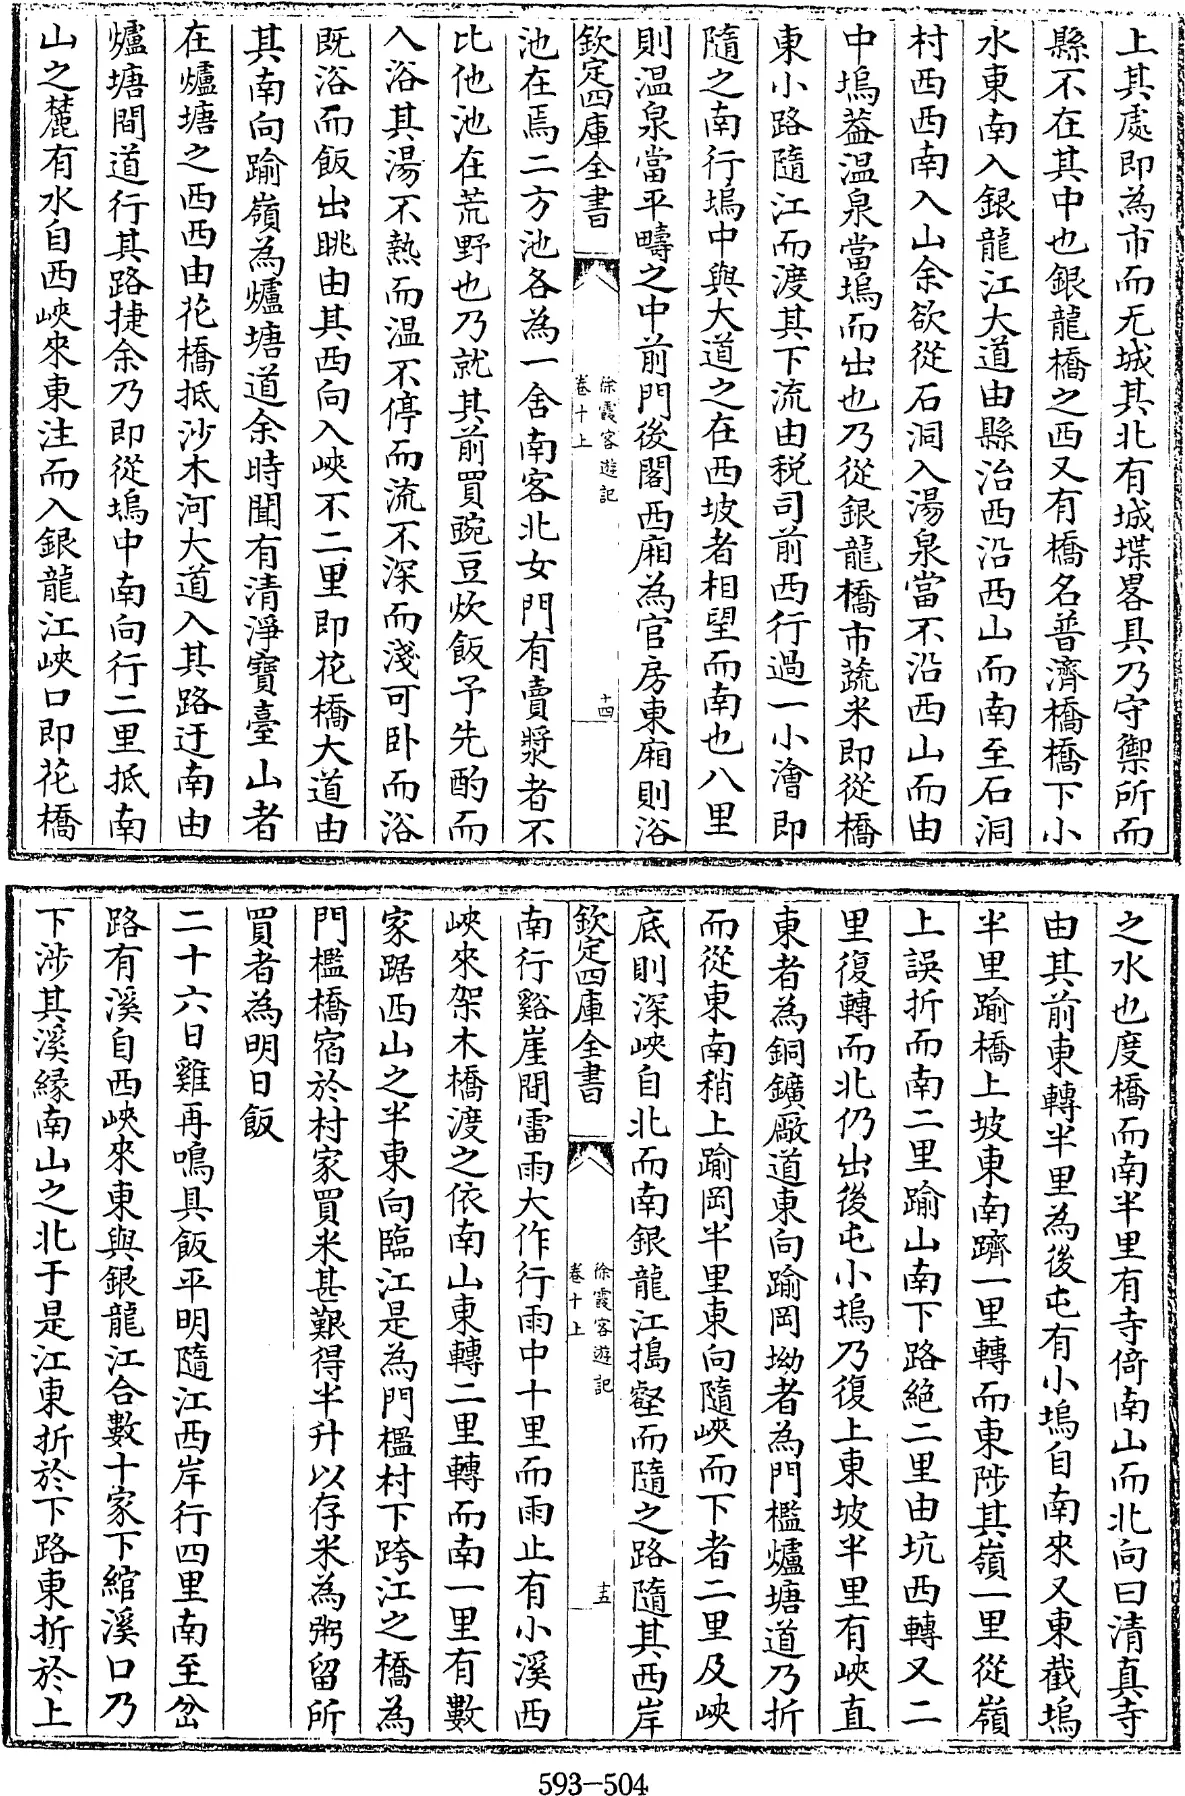 上其處即為市而无城其北有城堞畧具乃守禦所而
縣不在其中也銀龍橋之西又有橋名普濟橋橋下小
水東南入銀龍江大道由縣治西沿西山而南至石洞
村西西南入山余欲從石洞入湯泉當不沿西山而由
中塢葢温泉當塢而出也乃從銀龍橋市蔬米即從橋
東小路隨江而渡其下流由税司前西行過一小澮即
隨之南行塢中與大道之在西坡者相望而南也八里
則温泉當平疇之中前門後閣西廂為官房東廂則浴
欽定四庫全書
徐霞客遊記
卷十上
十四
池在焉二方池各為一舍南客北女門有賣漿者不
比他池在荒野也乃就其前買豌豆炊飯予先酌而
入浴其湯不熱而温不停而流不深而淺可卧而浴
既浴而飯出眺由其西向入峽不二里即花橋大道由
其南向踰嶺為爐塘道余時聞有清淨寶臺山者
在爐塘之西西由花橋抵沙木河大道入其路迂南由
爐塘間道行其路捷余乃即從塢中南向行二里抵南
山之麓有水自西峽來東注而入銀龍江峽口即花橋
之水也度橋而南半里有寺倚南山而北向曰清真寺
由其前東轉半里為後屯有小塢自南來又東截塢
半里踰橋上坡東南躋一里轉而東陟其嶺一里從嶺
上誤折而南二里踰山南下路絶二里由坑西轉又二
里復轉而北仍出後屯小塢乃復上東坡半里有峽直
東者為銅鑛廠道東向踰岡坳者為門檻爐塘道乃折
而從東南稍上踰岡半里東向隨峽而下者二里及峽
底則深峽自北而南銀龍江搗壑而隨之路隨其西岸
欽定四庫全書
徐霞客遊記
卷十上
十五
南行谿崖間雷雨大作行雨中十里而雨止有小溪西
峽來架木橋渡之依南山東轉二里轉而南一里有數
家踞西山之半東向臨江是為門檻村下跨江之橋為
門檻橋宿於村家買米甚艱得半升以存米為粥留所
買者為明日飯
二十六日雞再鳴具飯平明隨江西岸行四里南至岔
路有溪自西峽來東與銀龍江合數十家下綰溪口乃
下涉其溪緣南山之北于是江東折於下路東折於上
593-504